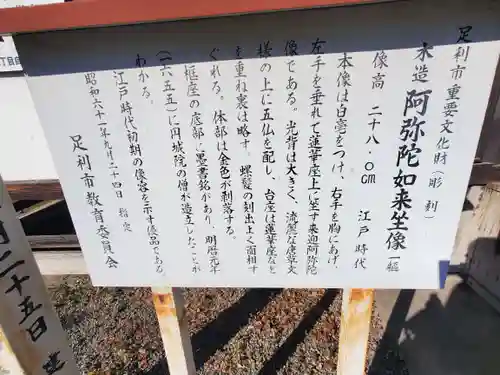 足利市重要文化財（彫刻）
木造 阿弥陀如来坐像 一軀
像高 二十八・〇㎝ 江戸時代
本像は白毫をつけ、右手を胸にあげ、
左手を垂れて蓮華座上に坐す来迎阿弥陀
像である。光背は大きく、流麗な唐草文
様の上に五仏を配し、台座は蓮華座など
を重ね裏は略す。螺髪の刻出上く面相す
ぐれる。体部は金色が剥落する。
框座の底部に墨書銘があり、明暦元年
（一六五五）に円城院の僧が造立したことが
わかる。
江戸時代初期の像容を示す優品である。
昭和六十一年九月二十四日 指定
足利市教育委員会
二十五日